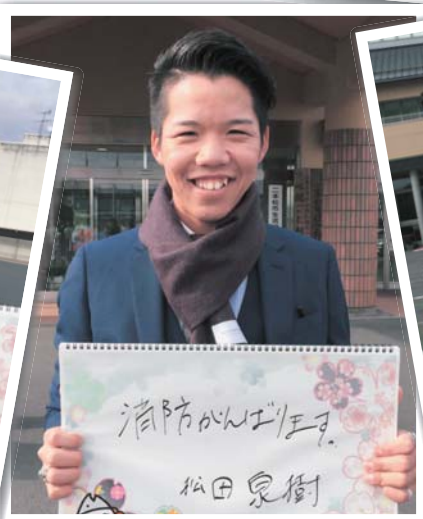 消防がんばります。
松田泉樹